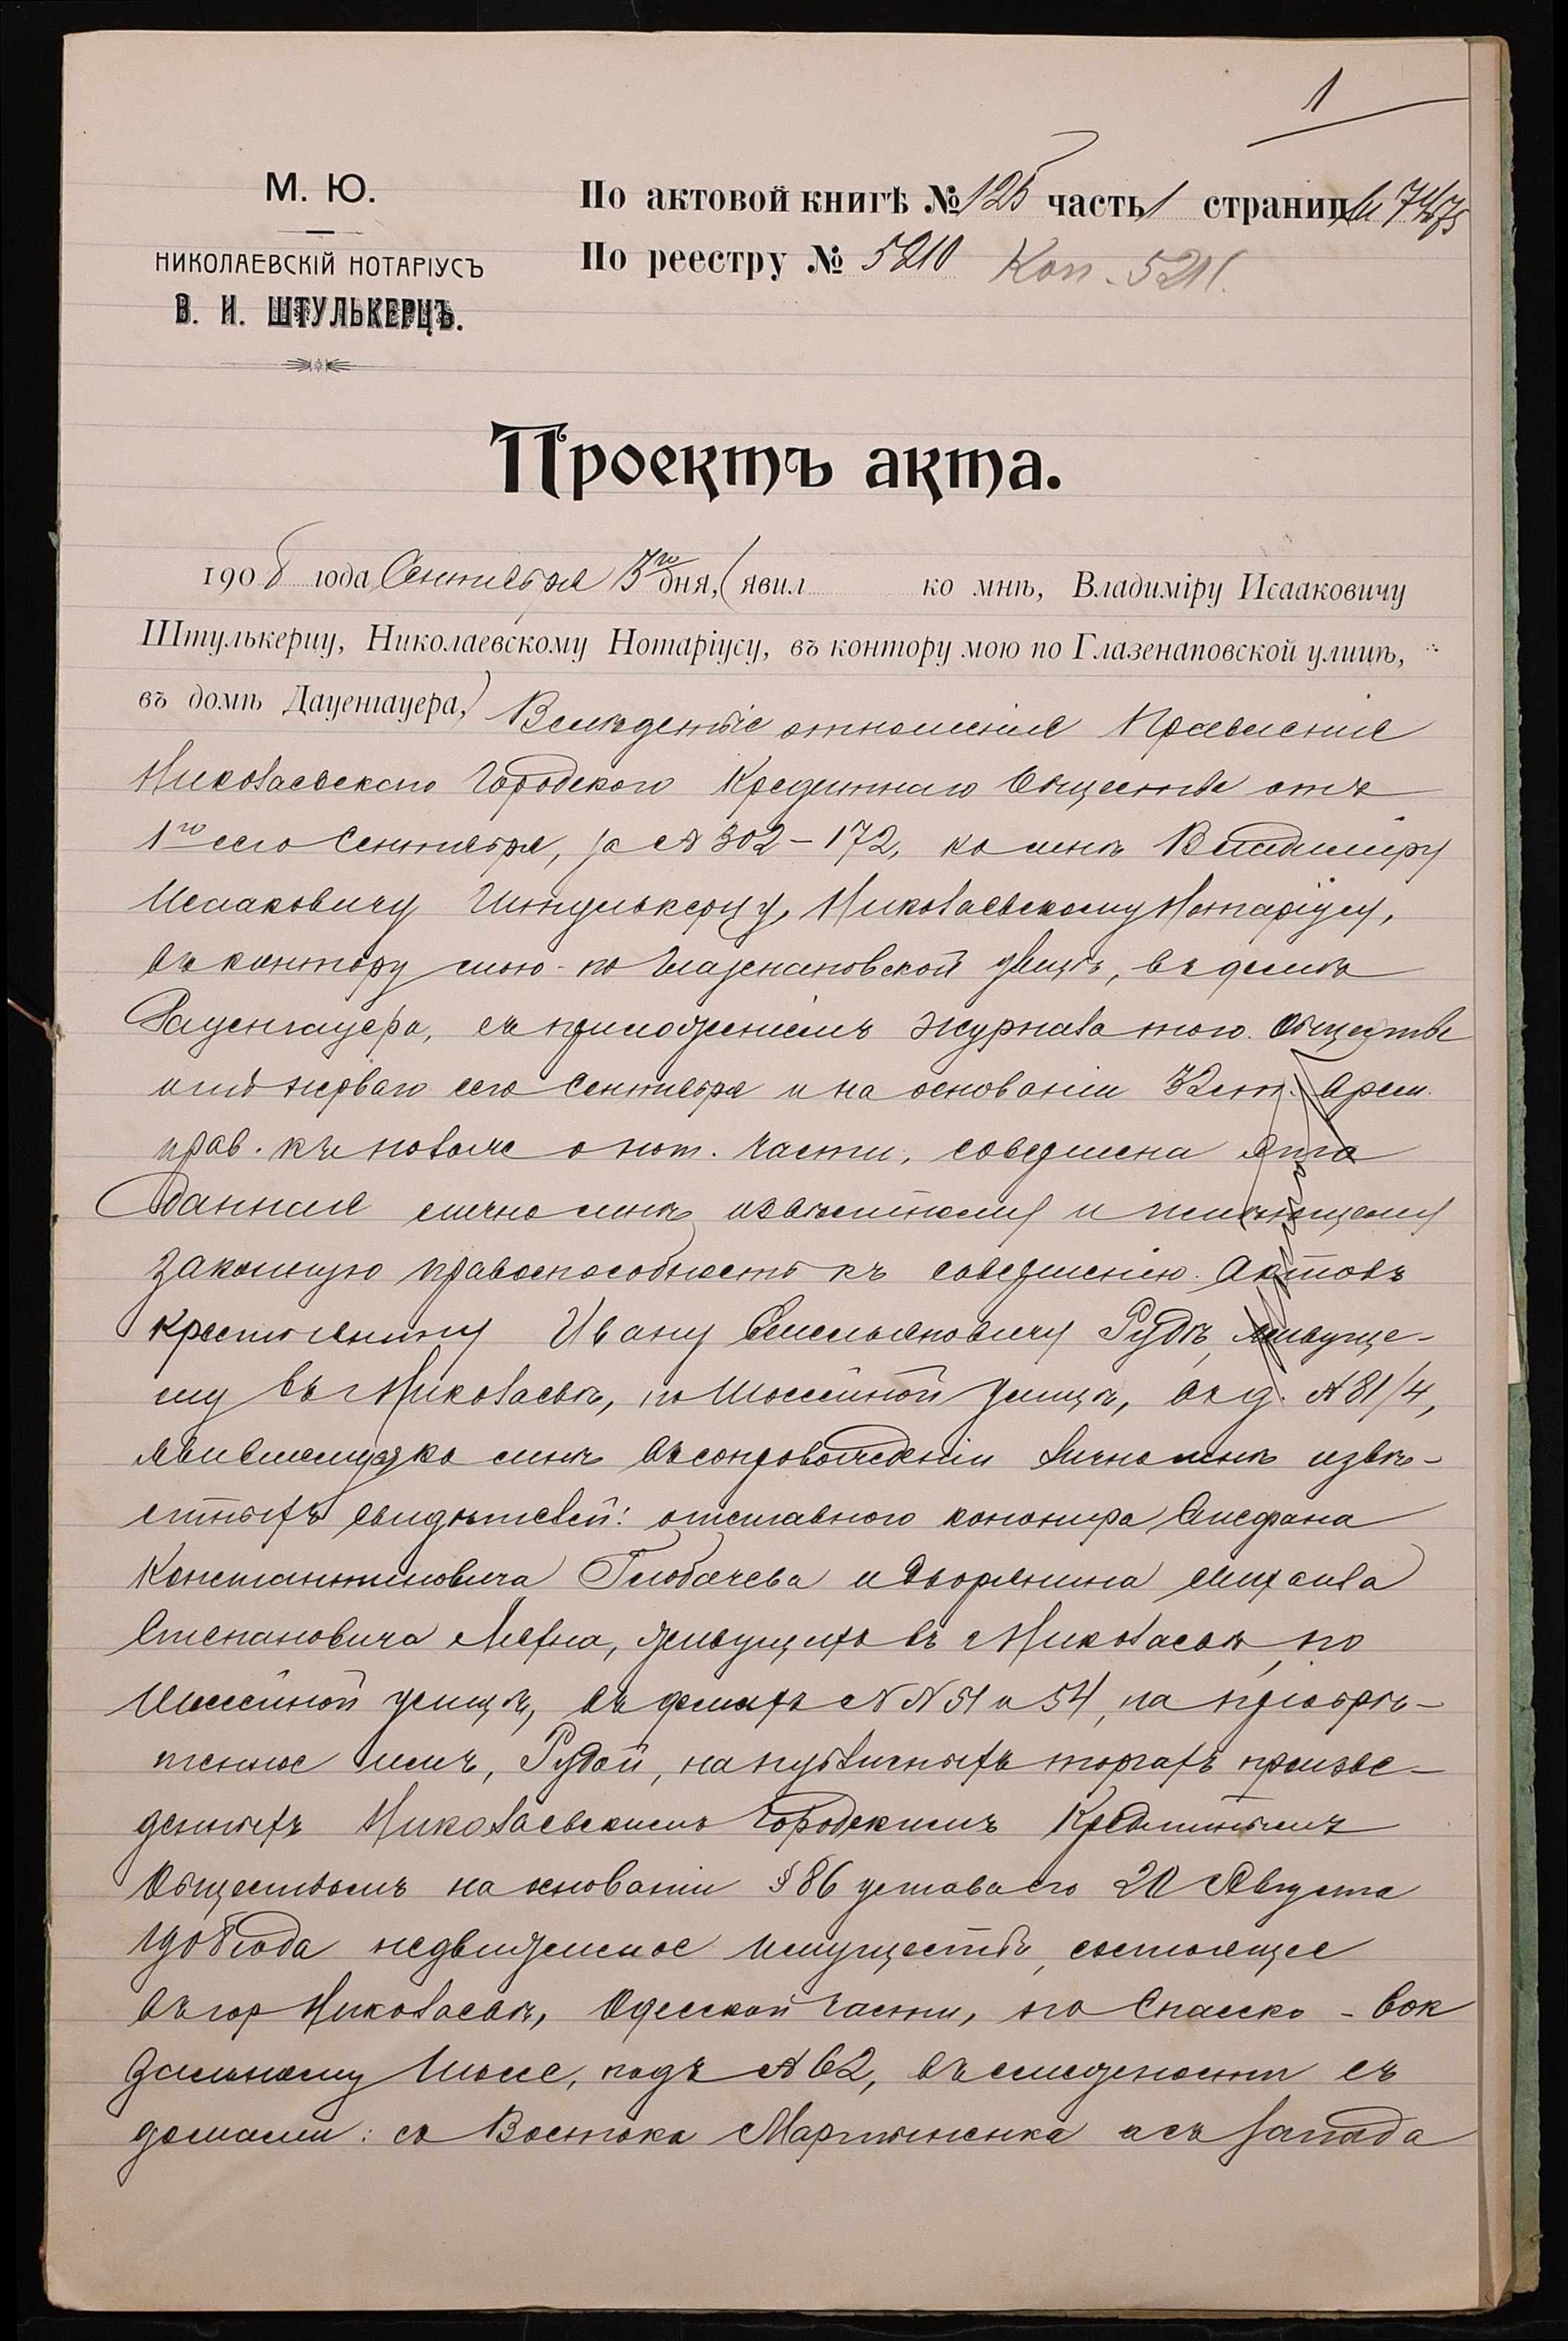 1
М. Ю.
НИКОЛАЕВСКІЙ НОТАРІУСЪ
В. И. ШТУЛЬКЕРЦЪ.
По актовой книгѣ № 125 часть 1 страниц
По реестру № 5210 Коп. 5211.
Проектъ акта.
1908 года Сентября 3го дня, (явил ко мнѣ, Владиміру Исааковичу
Штулькерцу, Николаевскому Нотаріусу, въ контору мою по Глазенаповской улицѣ,
въ домѣ Дауенгауера,) Вслѣдствіе отношенія Правленія
Николаевскаго Городского Кредитнаго Общества отъ
1го сего Сентября, за № 302-172, ко мнѣ Владиміру
Исааковичу Штулькерцу, Николаевскому Нотаріусу,
въ контору мою по Глазенаповской улицѣ, въ домѣ
Дауенгауера, съ приложеніемъ журнала того Общества
отъ перваго сего Сентября и на основаніи 32 ст. врем.
прав. къ полож о нот. части, совершена эта
данная лично мнѣ извѣстному и имѣющему
законную правоспособность къ совершенію актовъ
крестьянину Ивану Емельяновичу Рудѣ, живуще-
му въ г Николаевѣ, по Шоссейной улицѣ, въ д. № 81/4,
явившемуся ко мнѣ въ сопровожденіи лично мнѣ извѣ-
стныхъ свидѣтелей: отставного канонира Стефана
Константиновича Глобачева и дворянина Михаила
Степановича живущихъ въ г Николаевѣ, по
Шоссейной улицѣ, въ домахъ №№ 51 и 54, на пріобрѣ-
тенное имъ, Рудой, на публичныхъ торгахъ произве-
денныхъ Николаевскимъ Городскимъ Кредитнымъ
Обществомъ на основаніи § 86 устава его 20 Августа
1908 года недвижимое имущество, состоящее
въ гор Николаевѣ, Одесской части, по Спасско-Вок
зальному Шоссе, подъ № 62, въ смежности съ
домами: съ Востока Мартыненка а съ Запада